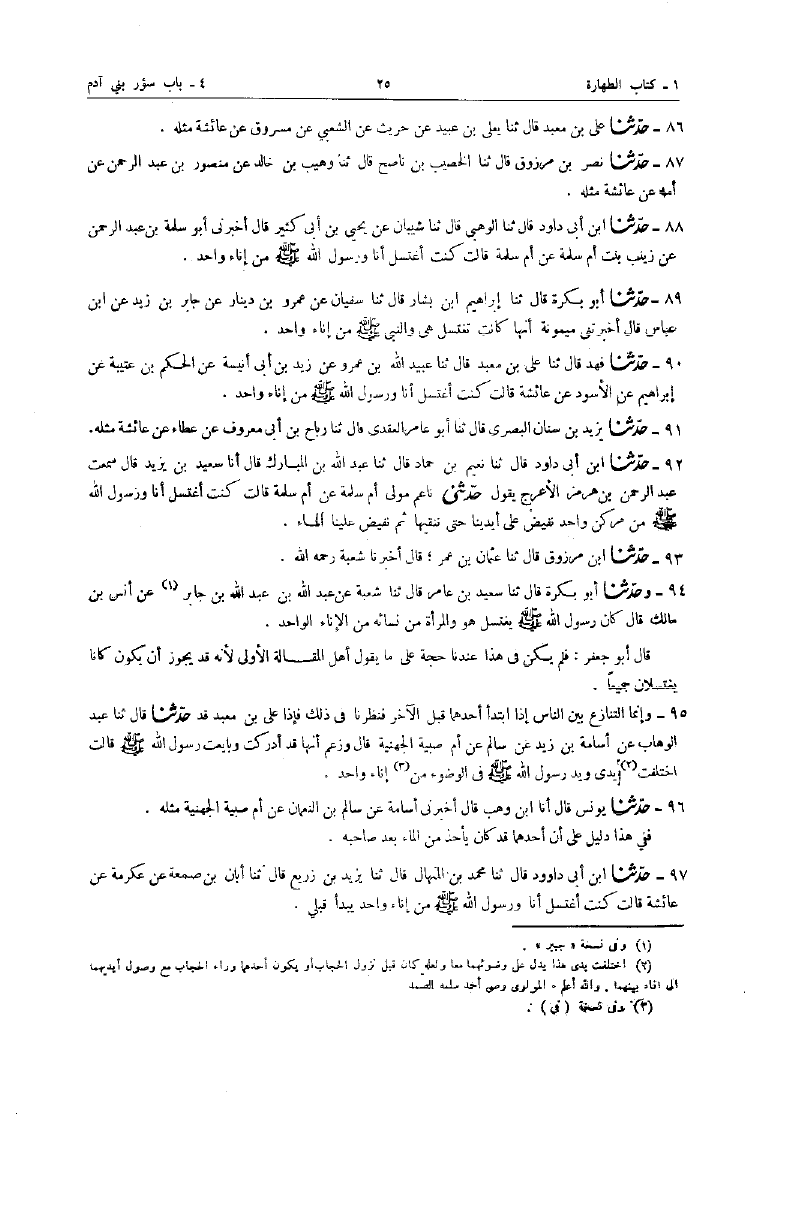 ١ ـ كتاب الطهارة ٢٥ ٤ ـ باب سؤر بني آدم
٨٦ ـ حدّثنا على بن معبد قال ثنا يعلى بن عبيد عن حريث عن الشعبي عن مسروق عن عائشة مثله .
٨٧ ـ حدّثنا نصر بن مرزوق قال ثنا الخصيب بن ناصح قال ثنا وهيب بن خالد عن منصور بن عبد الرحمن عن
أمه عن عائشة مثله .
٨٨ ـ حدّثنا ابن أبى داود قال ثنا الوهبي قال ثنا شيبان عن يحيى بن أبى كثير قال أخبرنى أبو سلمة بن عبد الرحمن
عن زينب بنت أم سلمة عن أم سلمة قالت كنت أغتسل أنا ورسول الله ﷺ من إناء واحد .
٨٩ ـ حدّثنا أبو بكرة قال ثنا إبراهيم ابن بشار قال ثنا سفيان عن عمرو بن دينار عن جابر بن زيد عن ابن
عباس قال أخبرتنى ميمونة أنها كانت تغتسل هى والنبي ﷺ من إناء واحد .
٩٠ ـ حدّثنا فهد قال ثنا على بن معبد قال ثنا عبيد الله بن عمرو عن زيد بن أبى أنيسة عن الحكم بن عتيبة عن
إبراهيم عن الأسود عن عائشة قالت كنت أغتسل أنا ورسول الله ﷺ من إناء واحد .
٩١ ـ حدّثنا يزيد بن سنان البصرى قال ثنا أبو عامر العقدى قال ثنا رباح بن أبى معروف عن عطاء عن عائشة مثله.
٩٢ ـ حدّثنا ابن أبى داود قال ثنا نعيم بن حماد قال ثنا عبد الله بن المبارك قال أنا سعيد بن يزيد قال سمعت
عبد الرحمن بن هرمز الأعرج يقول حدّثني ناعم مولى أم سلمة عن أم سلمة قالت كنت أغتسل أنا ورسول الله
ﷺ من مركن واحد نفيض على أيدينا حتى ننقيها ثم نفيض علينا الماء .
٩٣ ـ حدّثنا ابن مرزوق قال ثنا عثمان بن عمر ؛ قال أخبرنا شعبة رحمه الله .
٩٤ ـ وحدّثنا أبو بكرة قال ثنا سعيد بن عامر قال ثنا شعبة عن عبد الله بن عبد الله بن جابر (١) عن أنس بن
مالك قال كان رسول الله ﷺ يغتسل هو والمرأة من نسائه من الإناء الواحد .
قال أبو جعفر : فلم يكن فى هذا عندنا حجة على ما يقول أهل المقالة الأولى لأنه قد يجوز أن يكون كانا
يغتسلان جميعاً .
٩٥ ـ وإنما التنازع بين الناس إذا ابتدأ أحدهما قبل الآخر فنظرنا فى ذلك فإذا على بن معبد قد حدّثنا قال ثنا عبد
الوهاب عن أسامة بن زيد عن سالم عن أم صبية الجهنية قال وزعم أنها قد أدركت وبايعت رسول الله ﷺ قالت
اختلفت(٢) يدى ويد رسول الله ﷺ فى الوضوء من(٣) إناء واحد .
٩٦ ـ حدّثنا يونس قال أنا ابن وهب قال أخبرنى أسامة عن سالم بن النعمان عن أم صبية الجهنية مثله .
ففي هذا دليل على أن أحدهما قد كان يأخذ من الماء بعد صاحبه .
٩٧ ـ حدّثنا ابن أبى داوود قال ثنا محمد بن المنهال قال ثنا يزيد بن زريع قال ثنا أبان بن صمعة عن عكرمة عن
عائشة قالت كنت أغتسل أنا ورسول الله ﷺ من إناء واحد يبدأ قبلي .
(١) وفى نسخة « جبير » .
(٢) اختلفت يدى هذا يدل على وضوئهما معا ولعله كان قبل نزول الحجاب أو يكون أحدهما وراء الحجاب مع وصول أيديهما
الى اناء بينهما . والله أعلم ٭ المولوى وصى أحمد سلمه الصمد
(٣) وفى نسخة ( في ) .